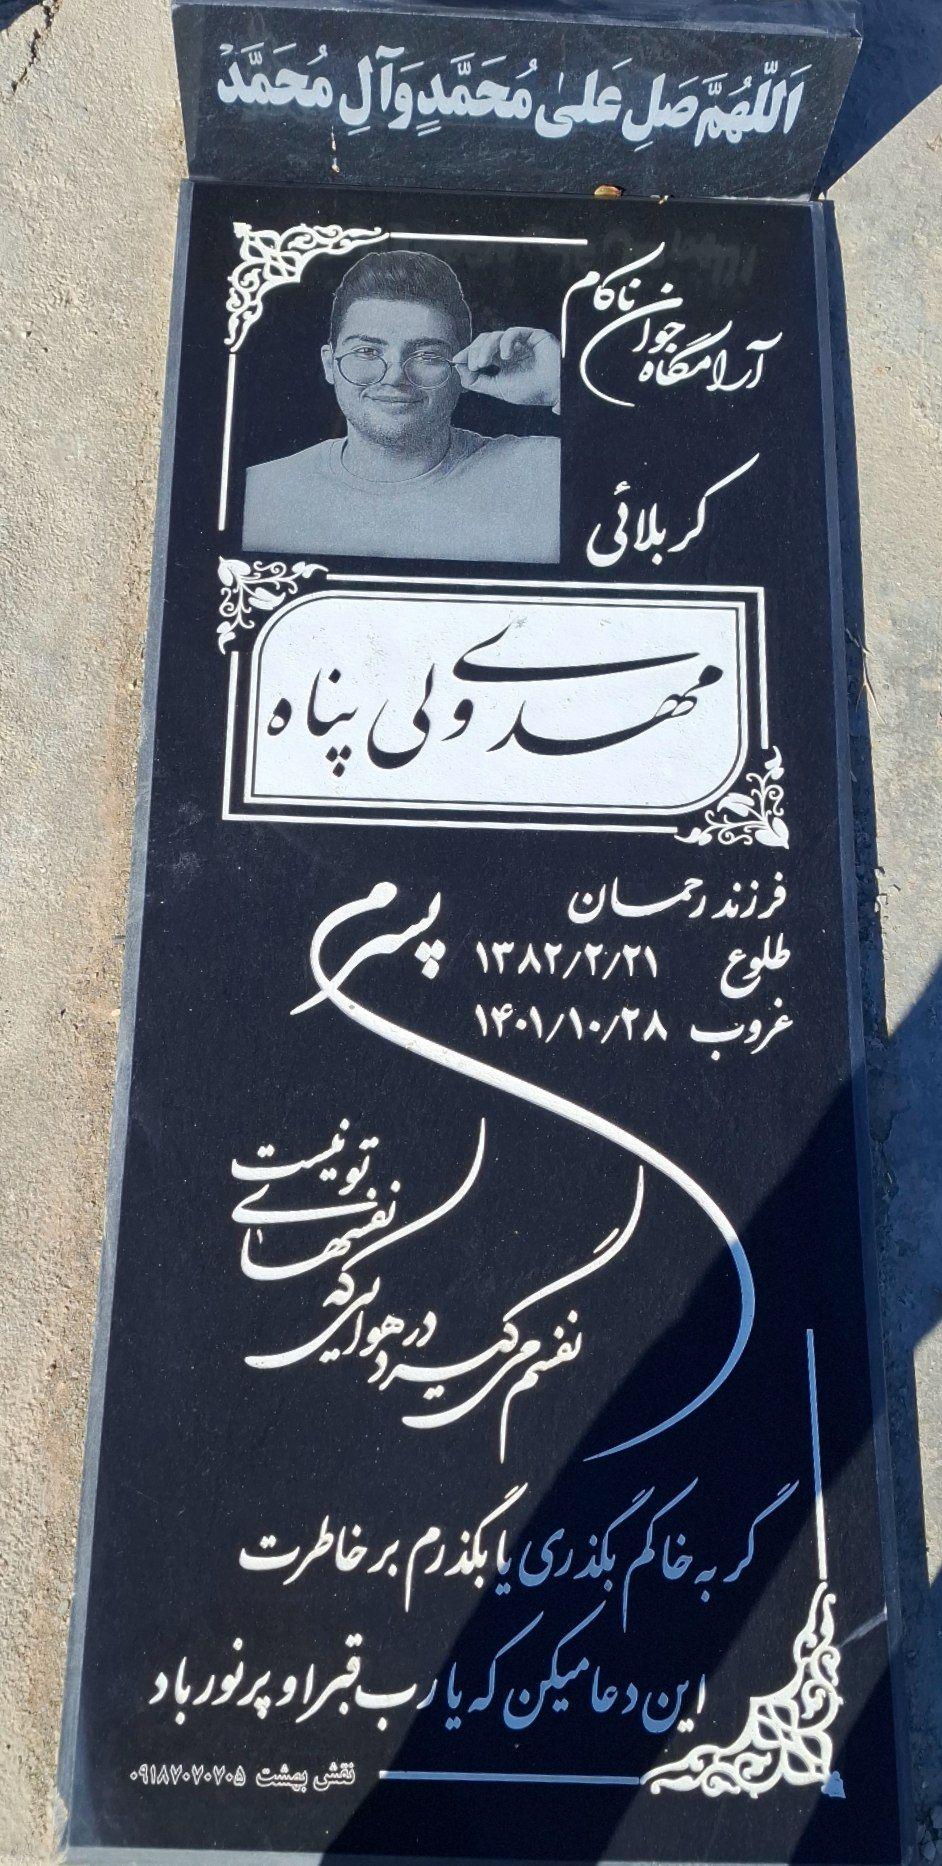 اَللّهُمَّ صَلِ عَلیٰ مُحَمَّدٍ وَآلِ مُحَمَّدْ
آرامگاه جوان ناکام
کربلائی
مهدی ولی پناه
فرزند رحمان
طلوع ۱۳۸۲/۲/۲۱
غروب ۱۴۰۱/۱۰/۲۸
پسرم
نفسم می گیرد
در هوایی که
نفسهای
تو نیست
گر به خاکم بگذری یا بگذرم بر خاطرت
این دعا میکن که یا رب قبر او پر نور باد
نقش بهشت ۰۹۱۸۷۰۷۰۷۰۵